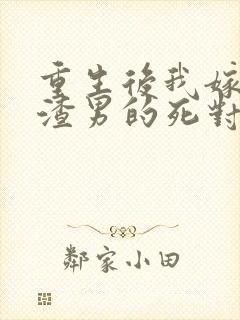 重生後我嫁
渣男的死對
鄰家小田